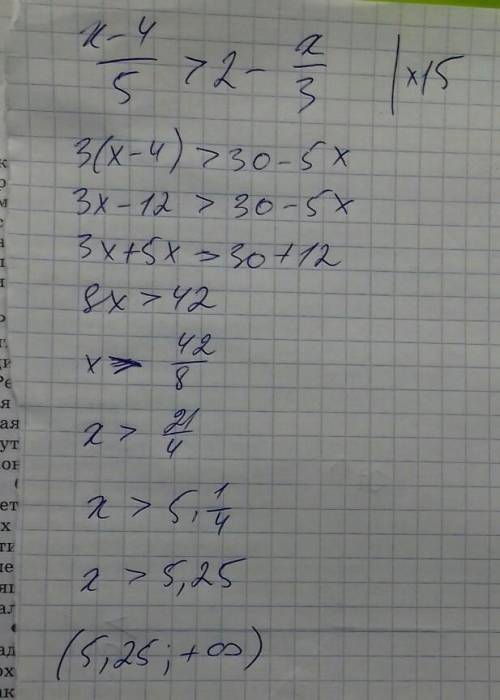 x-4/5 > 2 - x/3 | x15
3(x-4) > 30-5x
3x-12 > 30-5x
3x+5x > 30+12
8x > 42
x > 42/8
x > 21/4
x > 5,1/4
x > 5,25
(5,25; +∞)